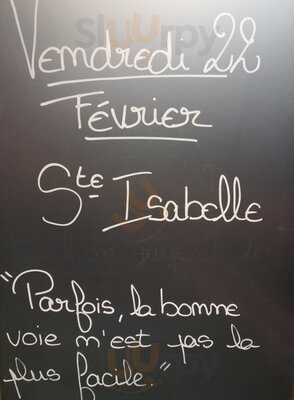 Vendredi 22
Février
Ste Isabelle
"Parfois, la bonne
voie n'est pas la
plus facile."